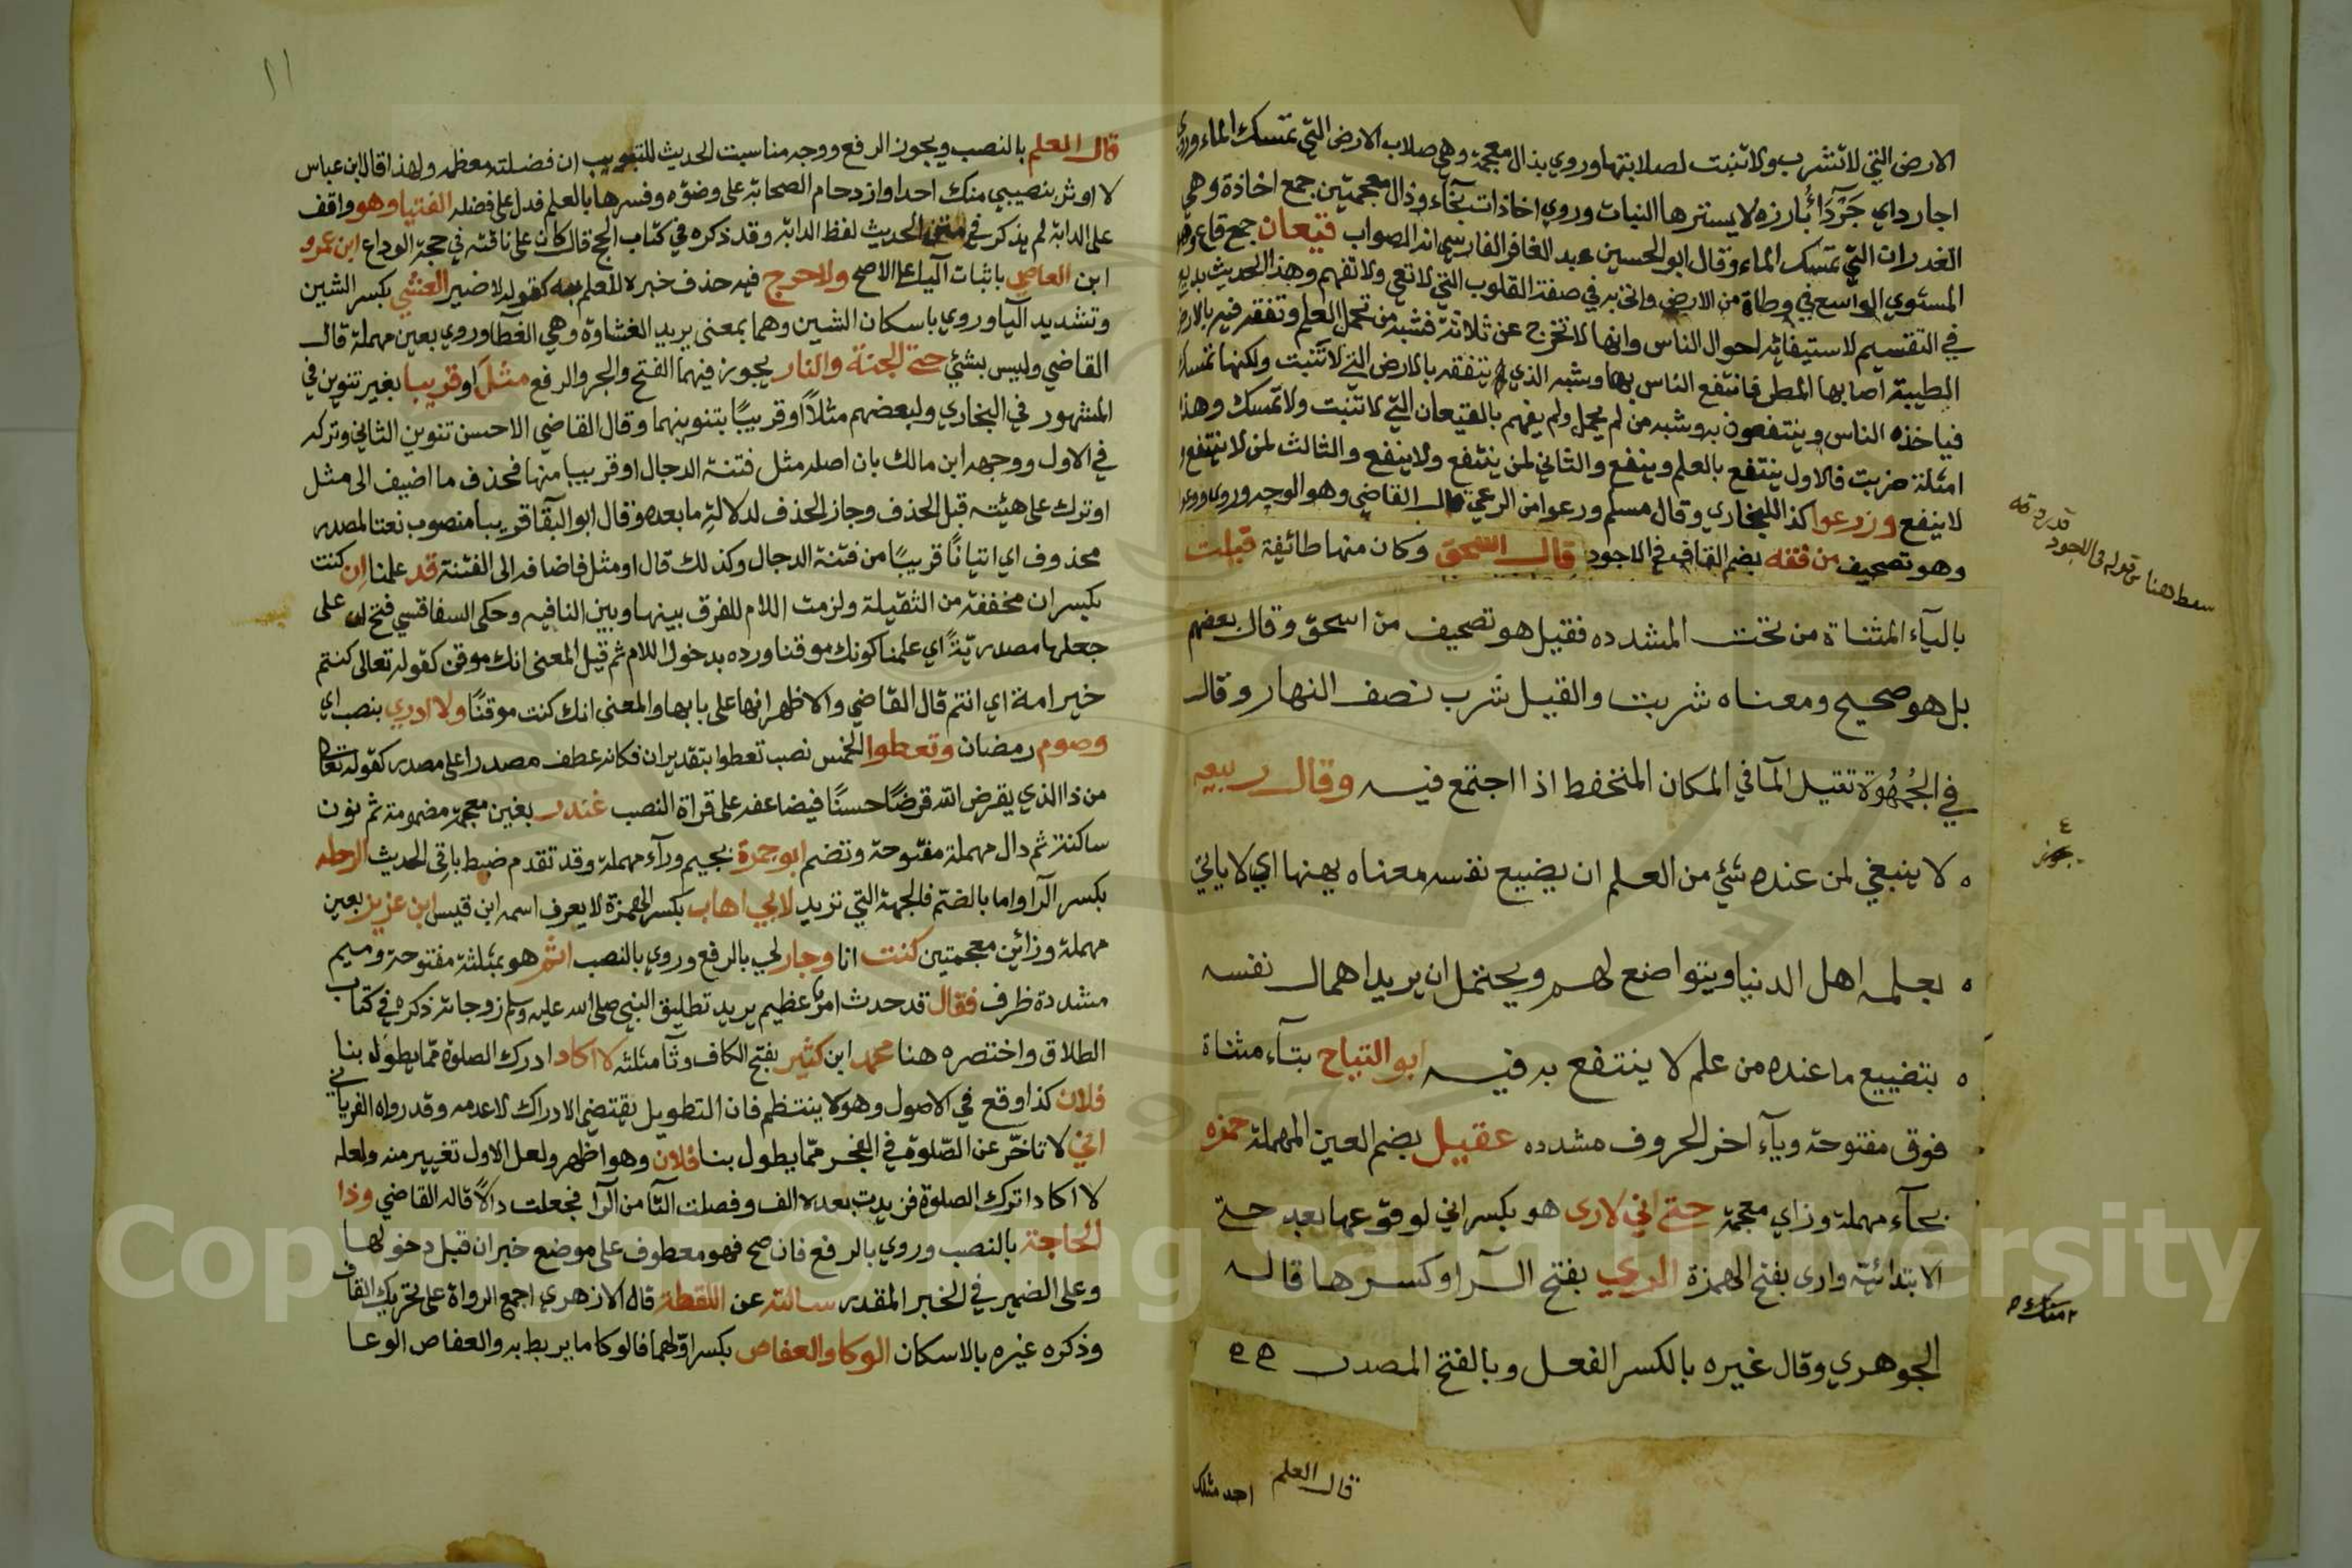 الارض التي لا تشرب ولا تنبت لصلابتها وروي بذال معجمة وهي صلاب الارض التي تمسك الماء وروي
اجارد اي جَرْدَاءُ بارزه لا يسترها النبات وروي اخاذات بخاء وذال معجمتين جمع اخاذة وهي
الغدران التي تمسك الماء وقال ابو الحسين عبد الغافر الفارسي انه الصواب قيعان جمع قاع وهو
المستوي الواسع في وطاة من الارض في صفة القلوب التي لا تعي ولا تفهم وهذا الحديث بديع
في التقسيم لاستيفائه احوال الناس وانها لا تخرج عن ثلاثة فشبه من تحمل العلم وتفقه فيه بالارض
الطيبة اصابها المطر فانتفع الناس بها وشبه الذي لا يتفقه بالارض التي لا تنبت ولكنها تمسك
فياخذه الناس وينتفعون به وشبه من لم يحمل ولم يفهم بالقيعان التي لا تنبت ولا تمسك وهذا
امثلة ضربت فالاول ينتفع بالعلم وينفع والثاني لمن ينتفع ولا ينفع والثالث لمن لا ينتفع و
لا ينفع وزرعوا كذا للبخاري وقال مسلم ورعوا من الرعي قال القاضي وهو الوجه وروي ووعوا
وهو تصحيف من فقه بضم القاف في الاجود قال اسحق وكان منها طائفة قيلت
بالياء المثناة من تحت المشدده فقيل هو تصحيف من اسحق وقال بعضهم
بل هو صحيح ومعناه شربت والقيل شرب نصف النهار وقال
في الجُمْهُوَة تقيل الما في المكان المنخفط اذا اجتمع فيه وقال ربيعه
لا ينبغي لمن عنده شيئ من العلم ان يضيع نفسه معناه يهنها اي لا ياتي
بعلمه اهل الدنيا ويتواضع لهم ويحتمل ان يريد اهمال نفسه
بتضييع ما عنده من علم لا ينتفع به فيه ابو التياح بتاء مثناة
فوق مفتوحة وياء اخر الحروف مشدده عقيل بضم العين المهملة حمزه
بحاء مهملة وزاي معجمة حتى اني لارى هو بكسر اني لوقوعها بعد حتى
الابتدائية وارى بفتح الهمزة الري بفتح الرا وكسرها قاله
الجوهري وقال غيره بالكسر الفعل وبالفتح المصدر
سقط هنا من قوله في الاجود
قدر ورقه
قال العلم
احد مثلك
١١
قال العلم بالنصب ويجوز الرفع ووجه مناسبت الحديث للتبويب ان فضلته معظمه ولهذا قال ابن عباس
لا اوثر بنصيبي منك احدا وازدحام الصحابه على وضوءه وفسرها بالعلم فدل على فضله الفتيا وهو واقف
على الدابة لم يذكر في متن الحديث لفظ الدابة وقد ذكره في كتاب الحج قال كان على ناقته في حجة الوداع ابن عمرو
ابن العاصي باثبات الياء على الاصح ولا حرج فيه حذف خبره للعلم به كقوله لا ضير الغشي بكسر الشين
وتشديد اليا وروي باسكان الشين وهما بمعنى يريد الغشاوة وهي الغطا وروي بعين مهملة قال
القاضي وليس بشئي حتى الجنة والنار يجوز فيهما الفتح والجر والرفع مثل او قريبا بغير تنوين في
المشهور في البخاري ولبعضهم مثلاً او قريبًا بتنوينهما وقال القاضي الاحسن تنوين الثاني وتركه
في الاول ووجهه ابن مالك بان اصله مثل فتنة الدجال او قريبا منها فحذف ما اضيف الى مثل
اوترك على هيئته قبل الحذف وجاز الحذف لدلالة ما بعده وقال ابو البقا قريبا منصوب نعتا لمصدر
محذوف اي اتيانًا قريبًا من فتنة الدجال وكذلك قال او مثل فاضافه الى الفتنة قد علمنا ان كنت
بكسر ان مخففة من الثقيلة ولزمت اللام للفرق بينها وبين النافيه وحكى السفاقسي فتح ان على
جعلها مصدريّة اي علمنا كونك موقنا ورده بدخول اللام ثم قيل المعنى انك موقن كقوله تعالى كنتم
خير امة اي انتم قال القاضي والاظهر انها على بابها والمعنى انك كنت موقنًا ولا ادري بنصب اي
وصوم رمضان وتعطوا الخمس نصب تعطوا بتقدير ان فكانه عطف مصدرا على مصدر كقوله تعالى
من ذا الذي يقرض الله قرضًا حسنًا فيضاعفه على قراة النصب غندر بغين معجمة مضمومة ثم نون
ساكنة ثم دال مهملة مفتوحة وتضم ابو جمرة بجيم وراء مهملة وقد تقدم ضبط باقي الحديث الرحله
بكسر الرا واما بالضم فالجهة التي تريد لابي اهاب بكسر الهمزة لا يعرف اسمه ابن قيس ابن عزيز بعين
مهملة وزائين معجمتين كنت انا وجار لي بالرفع وروي بالنصب اثم هو بمثلثة مفتوحة وميم
مشددة ظرف فقال قد حدث امر عظيم يريد تطليق النبي صلى الله عليه وسلم زوجاته ذكره في كتاب
الطلاق واختصره هنا محمد ابن كثير بفتح الكاف وثا مثلثه لا اكاد ادرك الصلوة مما يطول بنا
فلان كذا وقع في الاصول وهو لا ينتظم فان التطويل يقتضي الادراك لا عدمه وقد رواه الفريابي
اني لاتاخّر عن الصّلوة في الفجر مما يطول بنا فلان وهو اظهر ولعل الاول تغيير منه ولعله
لا اكاد اترك الصلوة فزيدت بعد لا الف وفصلت التا من الرا فجعلت دالاً قاله القاضي وذا
الحاجة بالنصب وروي بالرفع فان صح فهو معطوف على موضع خبر ان قبل دخولها
وعلى الضمير في الخبر المقدر سالته عن اللقطة قال الازهري اجمع الرواة على تحريك القاف
وذكره غيره بالاسكان الوكا والعفاص بكسر اوّلهما فالوكا ما يربط به والعفاص الوعا
Copyright © King Saud University
1957